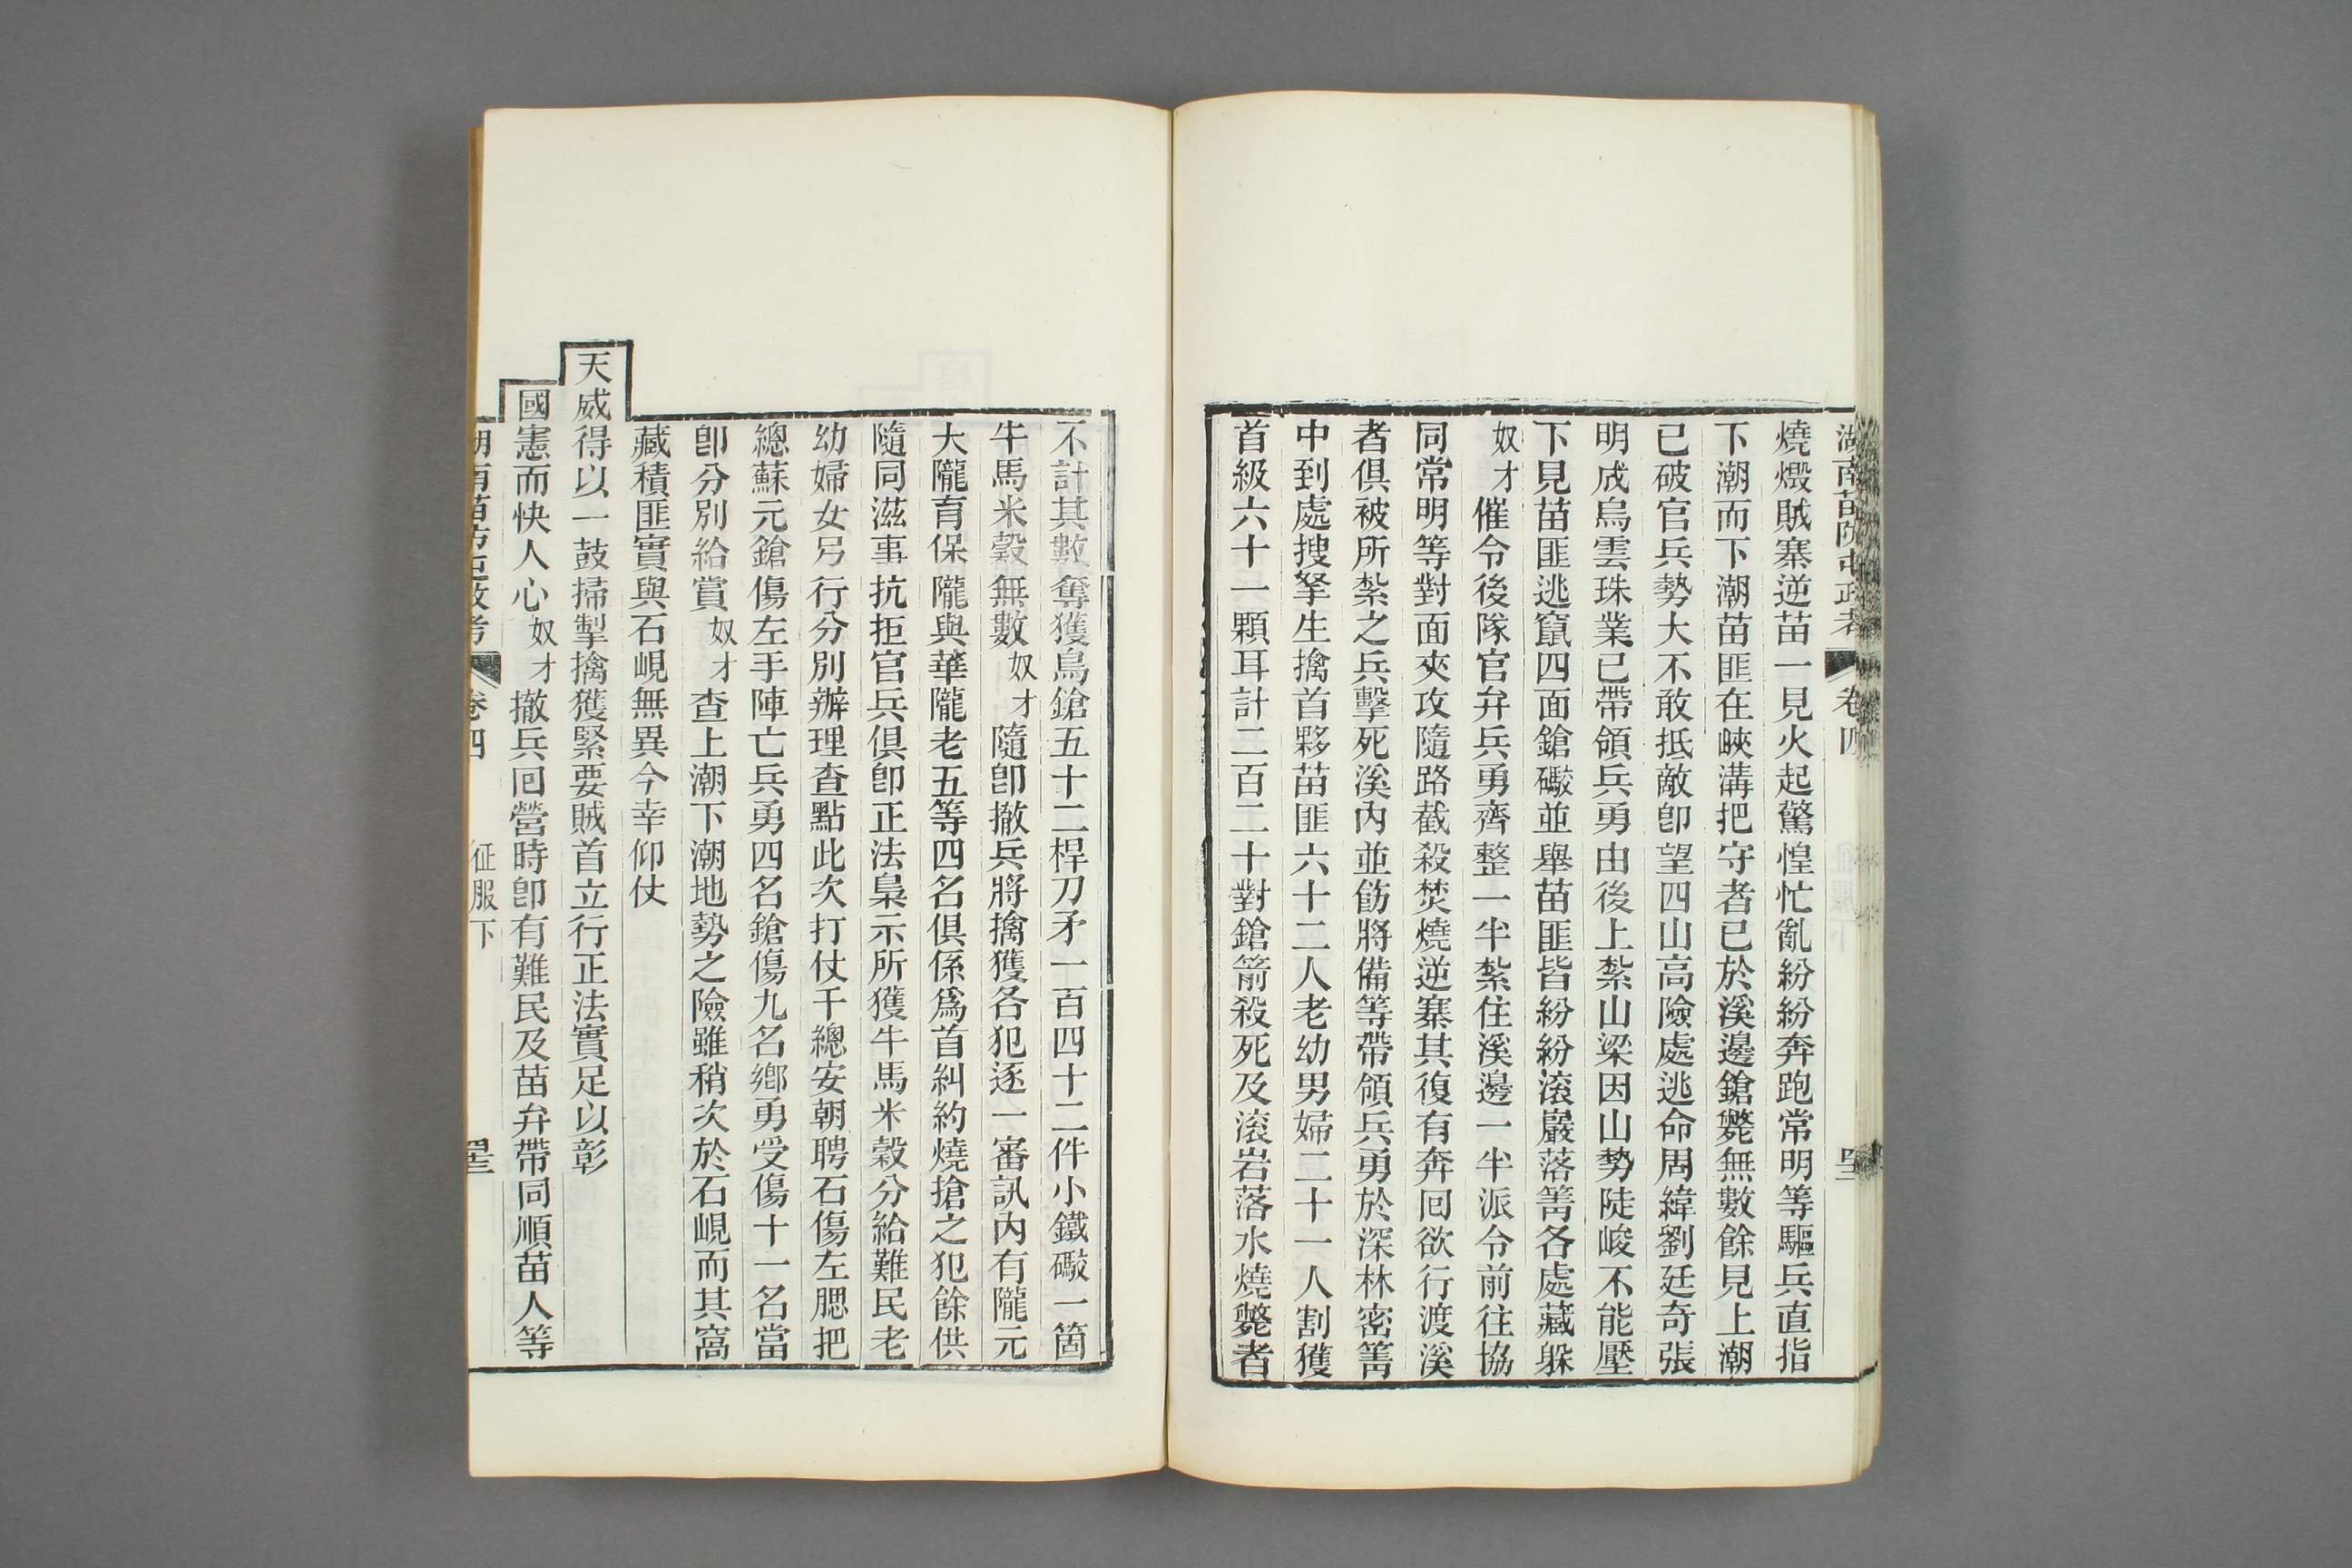 湖南苗防屯政考 卷四 征服下
燒燬賊寨逆苗一見火起驚惶忙亂紛紛奔跑常明等驅兵直指
下潮而下潮苗匪在峽溝把守者已於溪邊鎗斃無數餘見上潮
已破官兵勢大不敢抵敵卽望四山高險處逃命周緯劉廷奇張
明成烏雲珠業已帶領兵勇由後上紮山梁因山勢陡峻不能壓
下見苗匪逃竄四面鎗礮並舉苗匪皆紛紛滚巖落箐各處藏躲
奴才催令後隊官弁兵勇齊整一半紮住溪邊一半派令前往協
同常明等對面夾攻隨路截殺焚燒逆寨其復有奔回欲行渡溪
者俱被所紮之兵擊死溪內並飭將備等帶領兵勇於深林密箐
中到處搜拏生擒首夥苗匪六十二人老幼男婦二十一人割獲
首級六十一顆耳計二百二十對鎗箭殺死及滚岩落水燒斃者
不計其數奪獲鳥鎗五十二桿刀矛一百四十二件小鐵礮一箇
牛馬米穀無數奴才隨卽撤兵將擒獲各犯逐一審訊內有隴元
大隴育保隴與華隴老五等四名俱係爲首糾約燒搶之犯餘供
隨同滋事抗拒官兵俱卽正法梟示所獲牛馬米穀分給難民老
幼婦女另行分別辦理查點此次打仗千總安朝聘石傷左腮把
總蘇元鎗傷左手陣亡兵勇四名鎗傷九名鄉勇受傷十一名當
卽分別給賞奴才查上潮下潮地勢之險雖稍次於石峴而其窩
藏積匪實與石峴無異今幸仰仗
天威得以一鼓掃掣擒獲緊要賊首立行正法實足以彰
國憲而快人心奴才撤兵回營時卽有難民及苗弁帶同順苗人等
湖南苗防屯政考 卷四 征服下